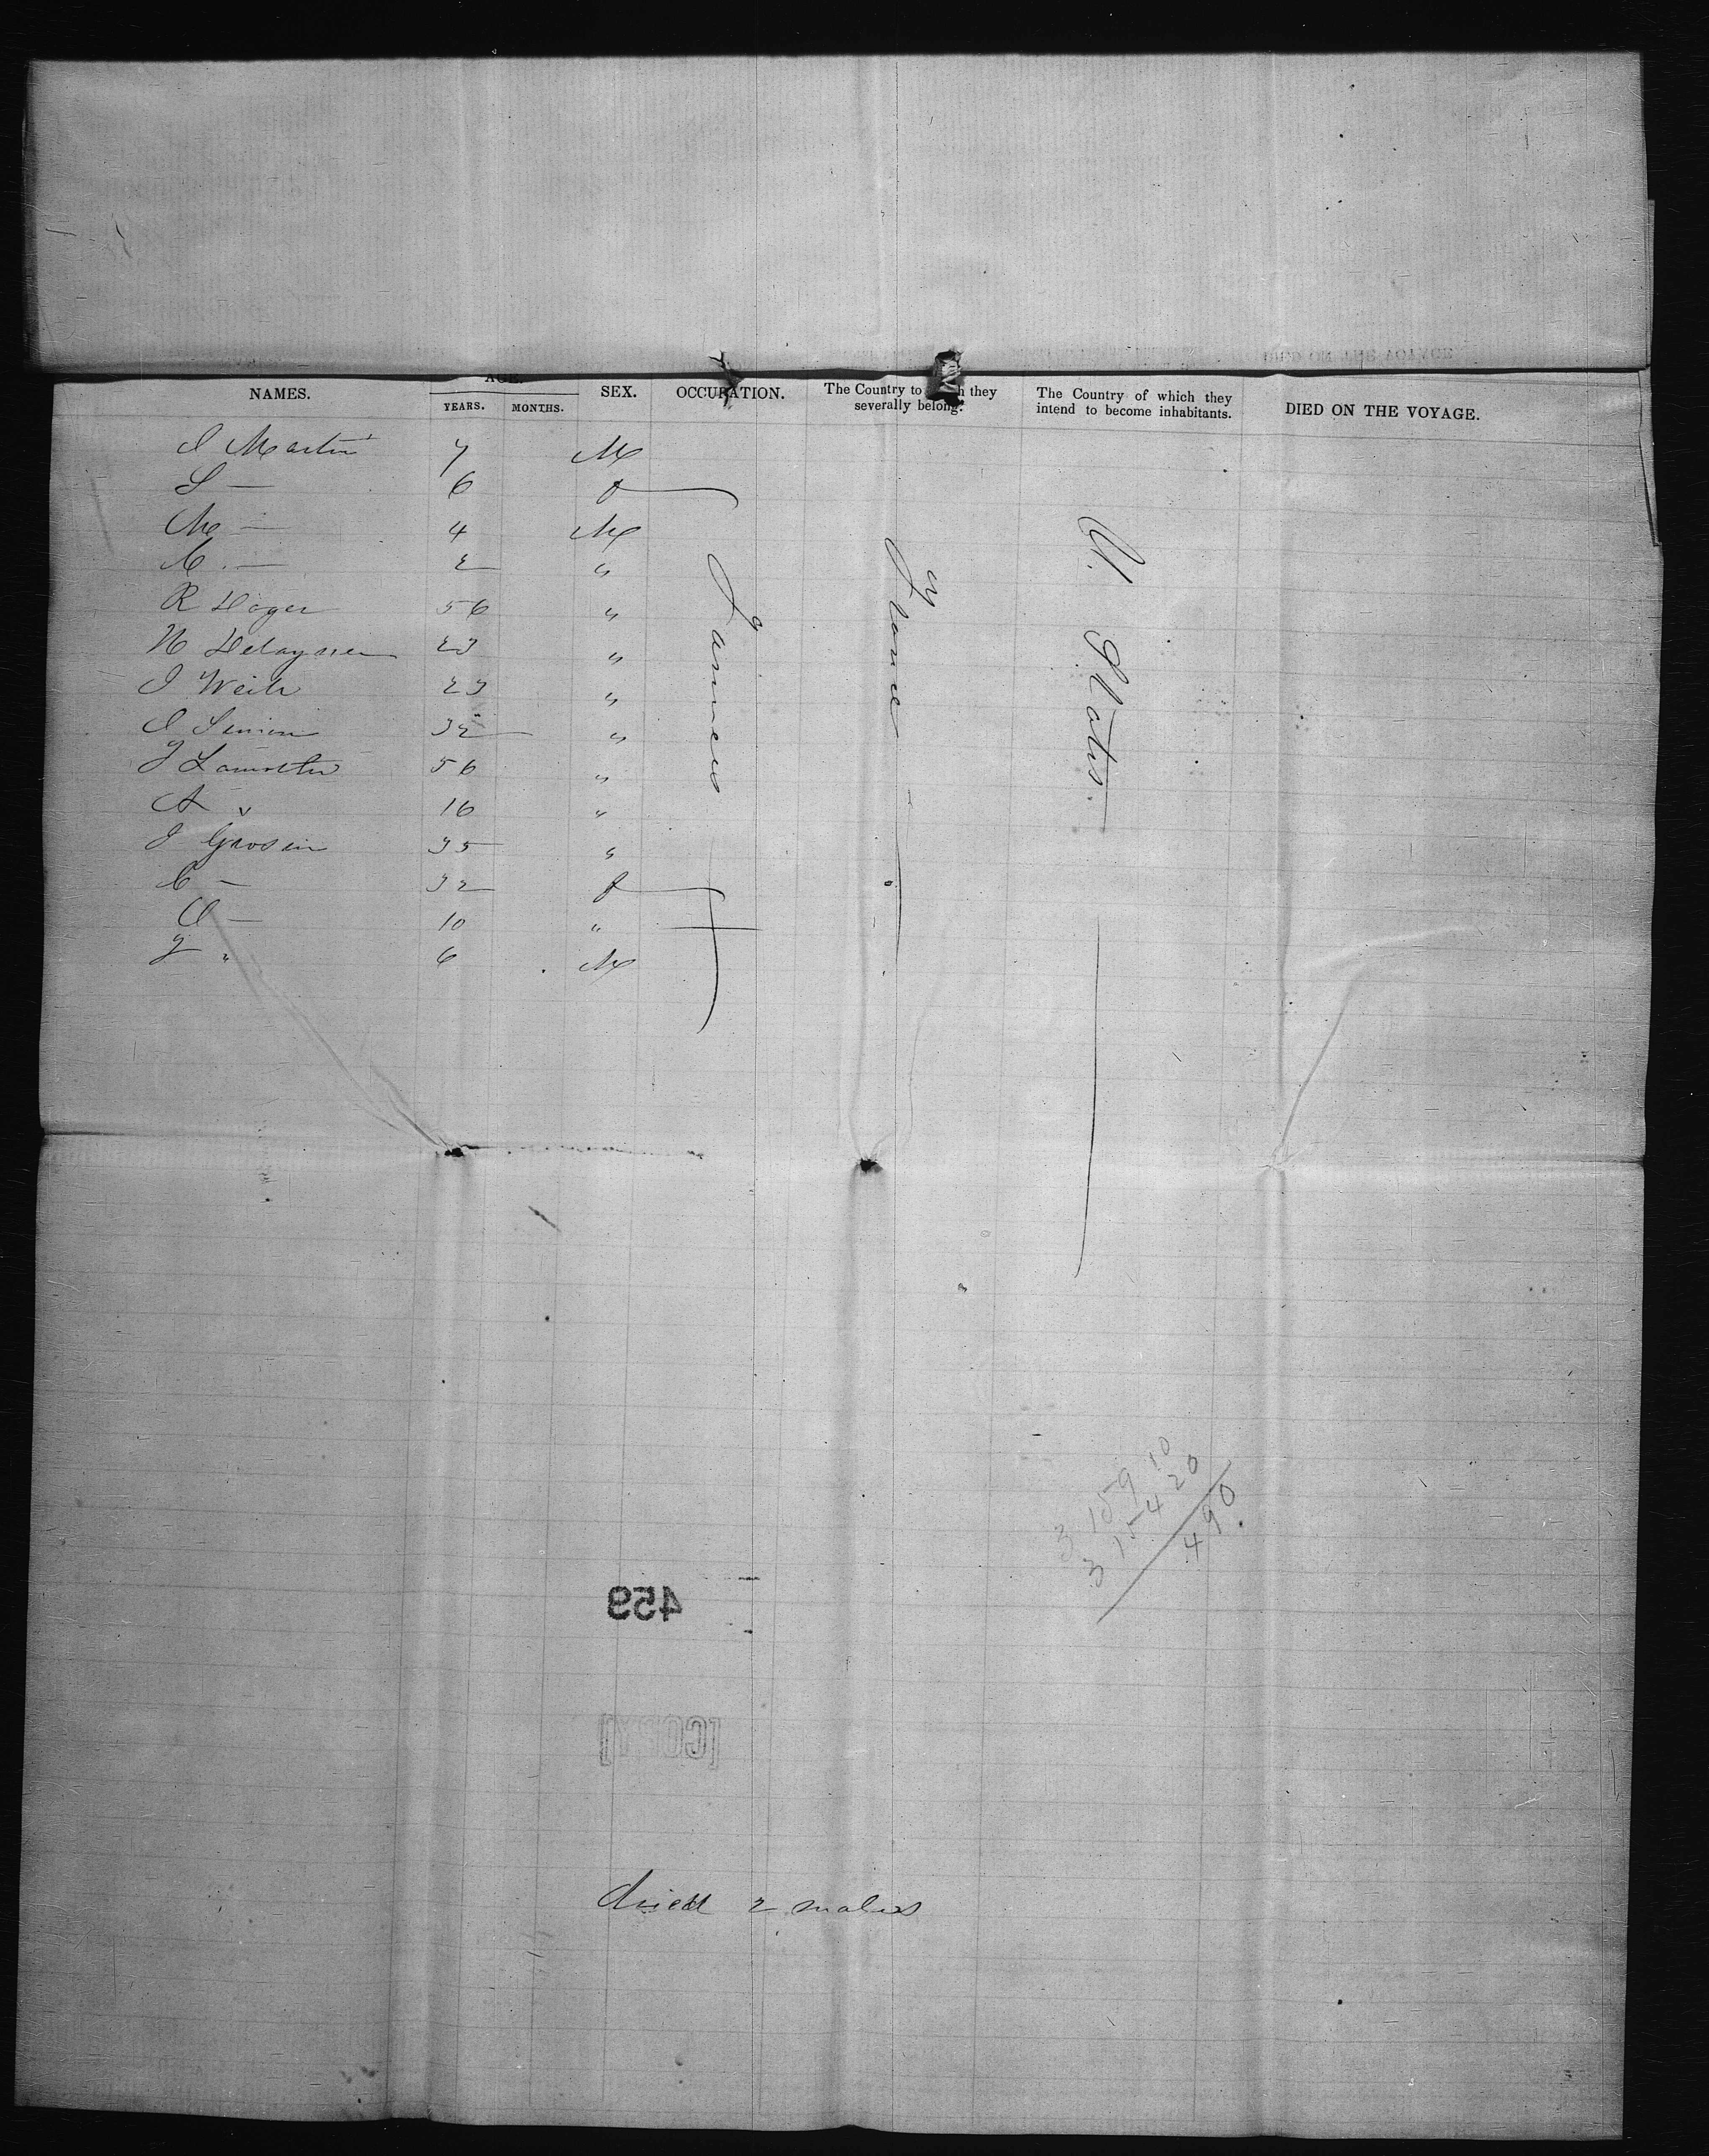 NAMES. AGE. YEARS. MONTHS. SEX. OCCUPATION. The Country to they severally belong. The Country of which they intend to become inhabitants. DIED ON THE VOYAGE.
J Martin 7 M
S — 6 f
M — 4 M
C. — 2 "
R Hager 56 "
N 23 "
J Weile 23 "
J Simon 32 "
J Lamotte 56 "
A " 16 "
J Grosin 35 "
C — 32 f
O — 10 "
J " 6 M
Farmers
France
U. States.
3 15 9 10
3 15 4 20
490
459
[COPY]
died 2 males